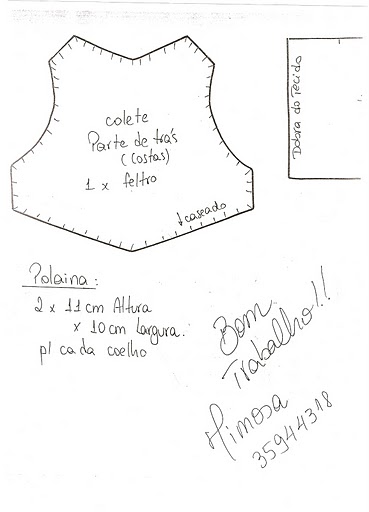 colete
Parte de trás
(costas)
1 x feltro
caseado
Dobra do Tecido
Polaina:
2 x 11 cm Altura
x 10 cm Largura.
p/ cada coelho
Bom
Trabalho!!
Mimosa
35944318